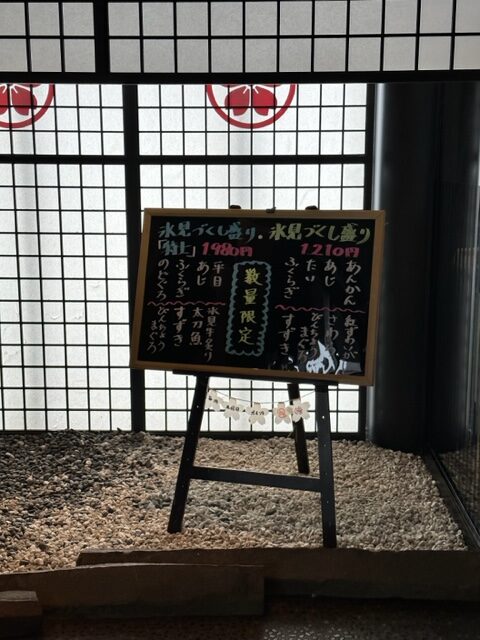 氷見づくし盛り
「特上」1980円
平目
あじ
ふくらぎ
のどぐろ
氷見牛炙り
太刀魚
すずき
びんちょう
まぐろ
数量限定
氷見づくし盛り
1210円
あんかん
あじ
たい
ふくらぎ
びんちょう
まぐろ
すずき